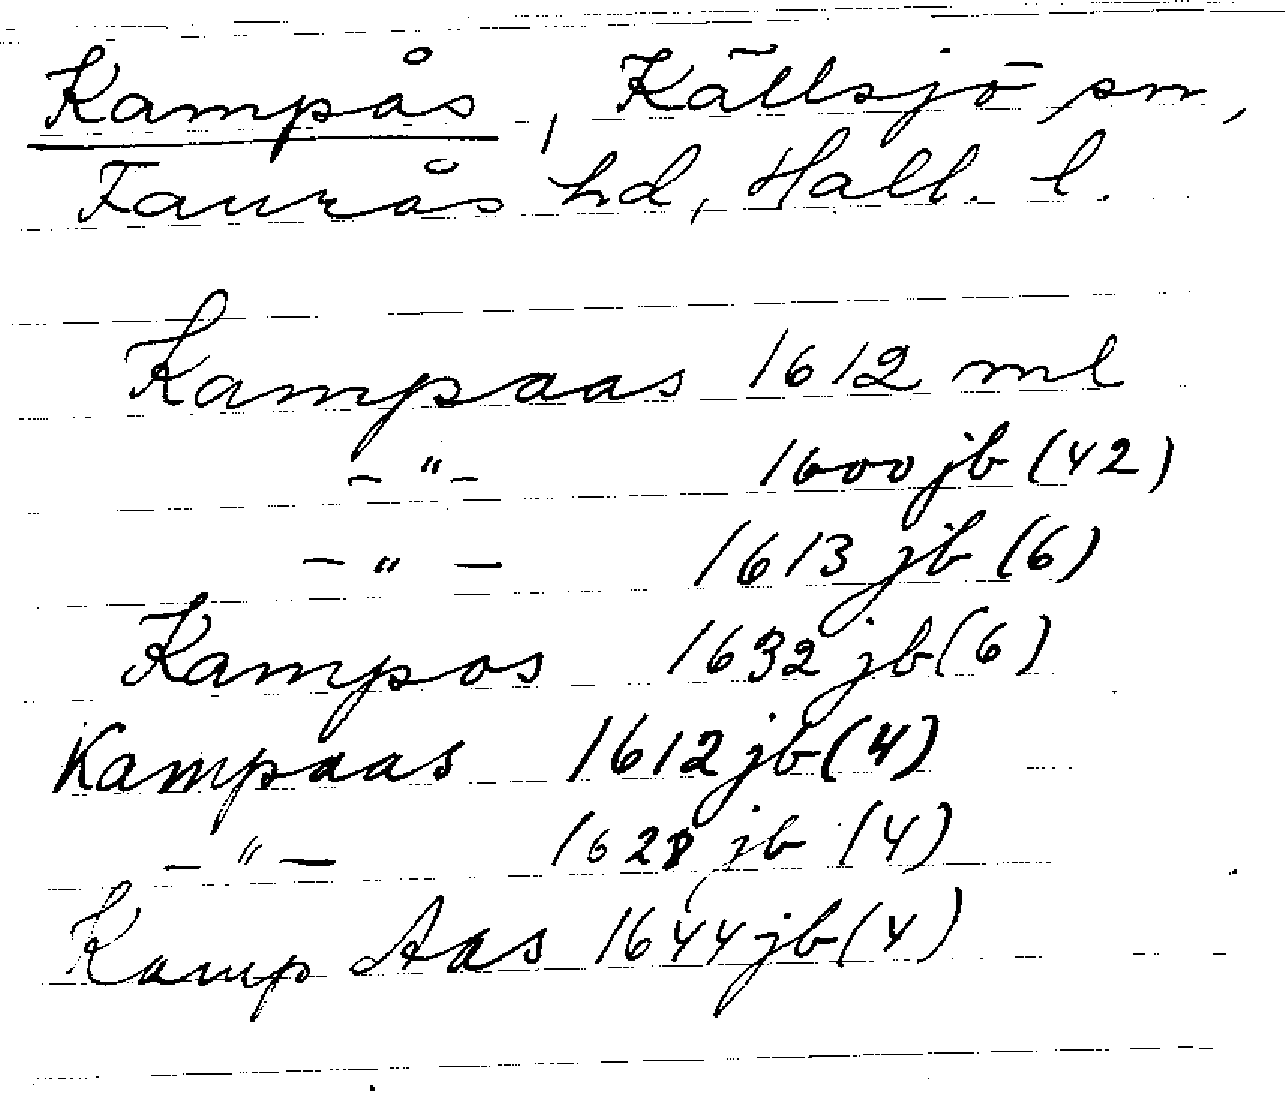 Kampås, Källsjö sn,
Faurås hd, Hall. l.
Kampaas 1612 ml
-"- 1600 jb (42)
-"- 1613 jb (6)
Kampos 1632 jb (6)
Kampaas 1612 jb (4)
-"- 1628 jb (4)
Kamp Aas 1644 jb (4)